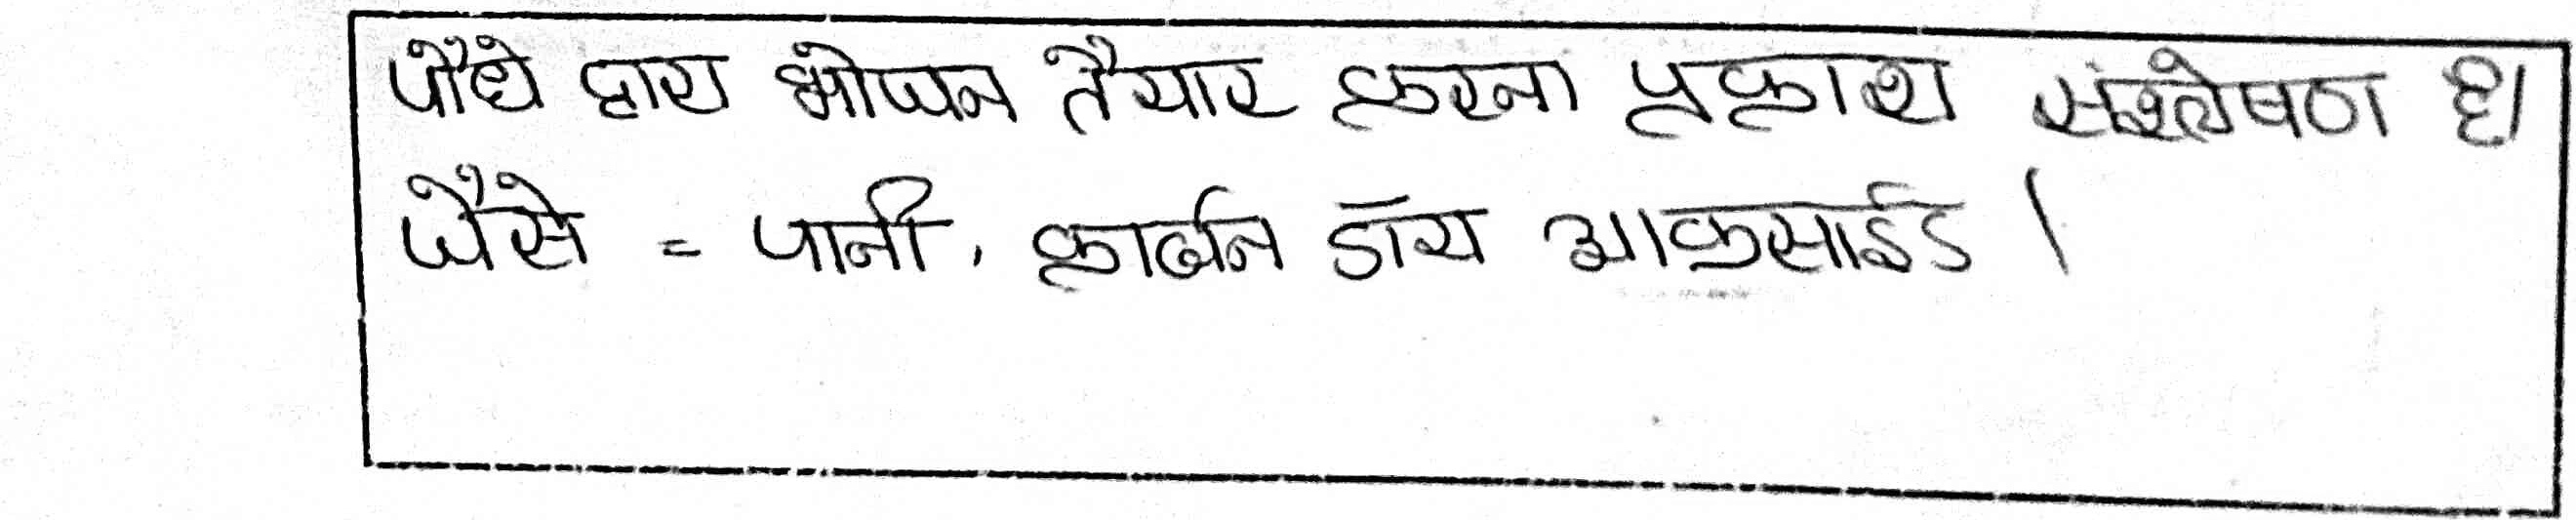 पौधे द्वारा भोजन तैयार करना प्रकाश संश्लेषण है।
जैसे = पानी, कार्बन डॉय आकसाईड ।